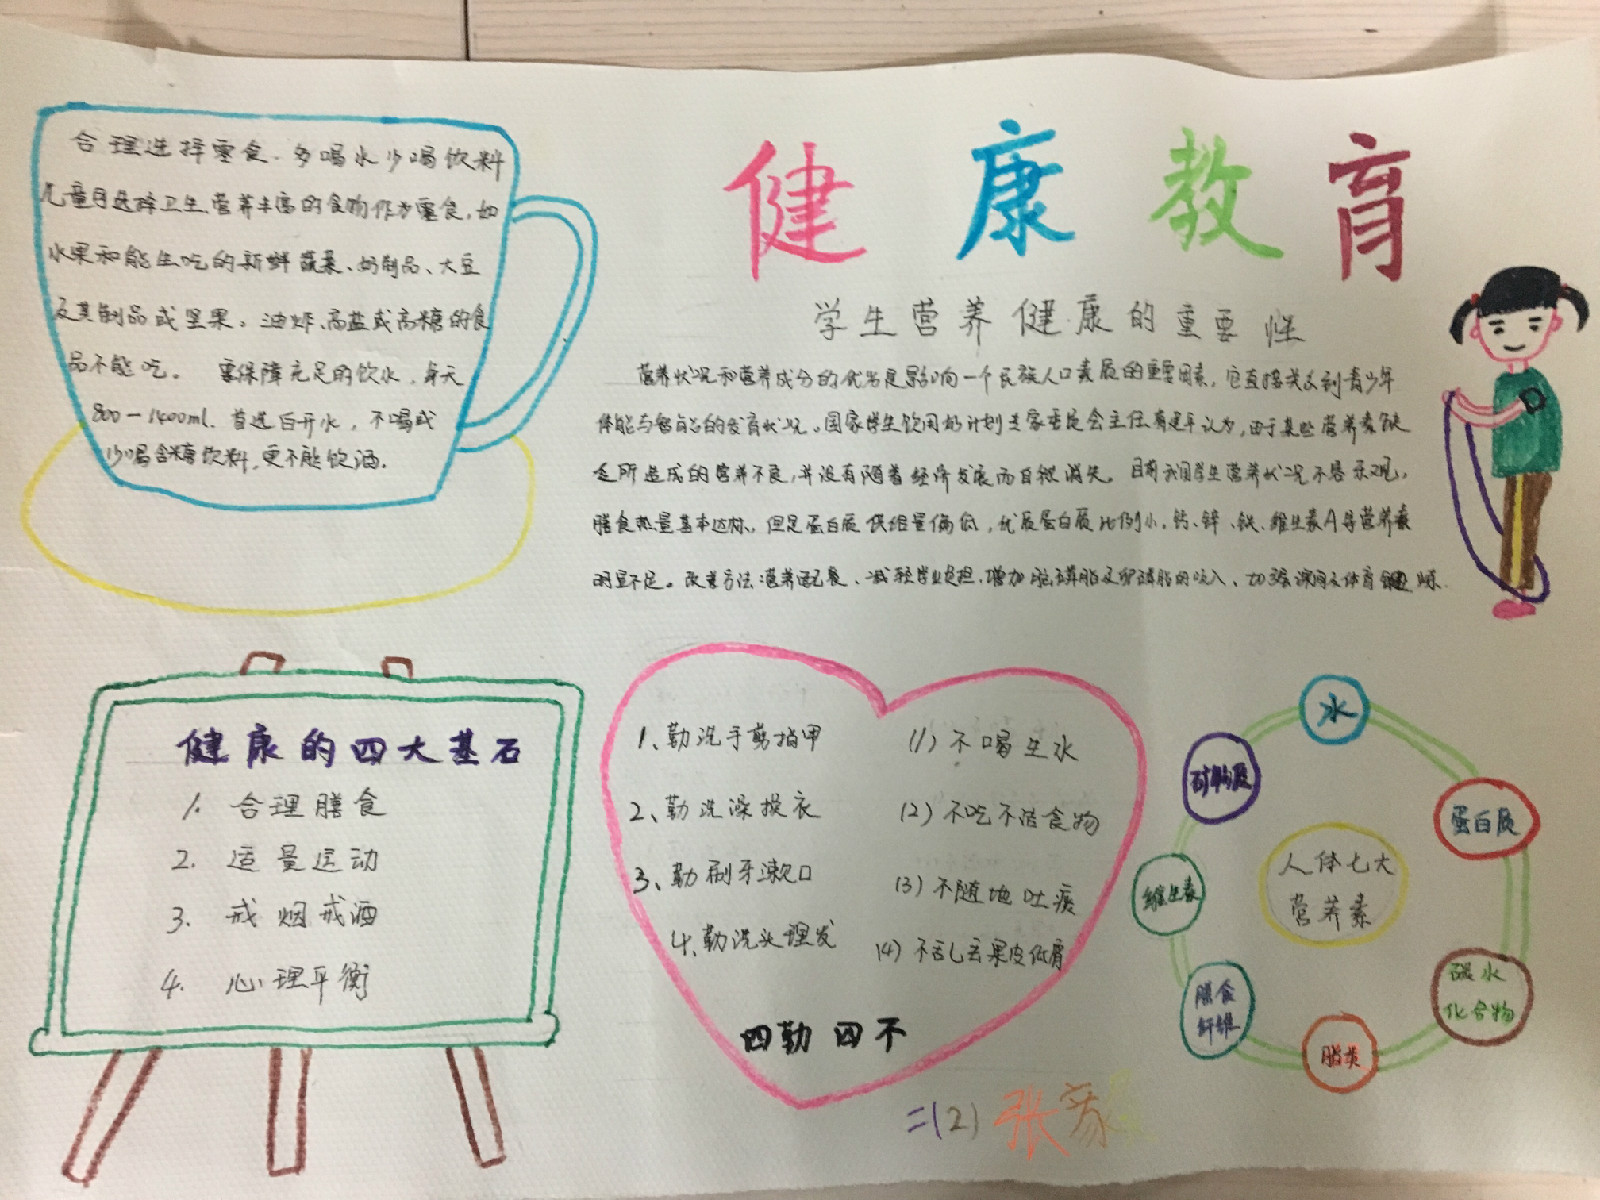 健康教育
合理选择零食.多喝水少喝饮料
儿童可选择卫生、营养丰富的食物作为零食,如
水果和能生吃的新鲜蔬菜、奶制品、大豆
及其制品或坚果。油炸、高盐或高糖的食
品不能吃。 要保障充足的饮水,每天
800-1400ml.首选白开水,不喝或
少喝含糖饮料,更不能饮酒.
学生营养健康的重要性
营养状况和营养成分的优劣是影响一个民族人口素质的重要因素,它直接关系到青少年
体能与智能的发育状况。国家学生饮用奶计划专家委员会主任 认为,由于某些营养素缺
乏所造成的营养不良,并没有随着经济发展而自然消失。目前我国学生营养状况不容乐观,
膳食热量基本达标,但是蛋白质供给量偏低,优质蛋白质比例小,钙、锌、铁、维生素A等营养素
明显不足。改善方法:营养配餐、减轻学业负担,增加脑磷脂及卵磷脂的吸入,加强课间及体育锻炼.
健康的四大基石
1. 合理膳食
2. 适量运动
3. 戒烟戒酒
4. 心理平衡
1、勤洗手剪指甲
2、勤洗澡换衣
3、勤刷牙漱口
4、勤洗头理发
(1)不喝生水
(2)不吃不洁食物
(3)不随地吐痰
(4)不乱丢果皮纸屑
四勤四不
水
蛋白质
碳水
化合物
脂类
膳食
纤维
维生素
矿物质
人体七大
营养素
二(2) 张